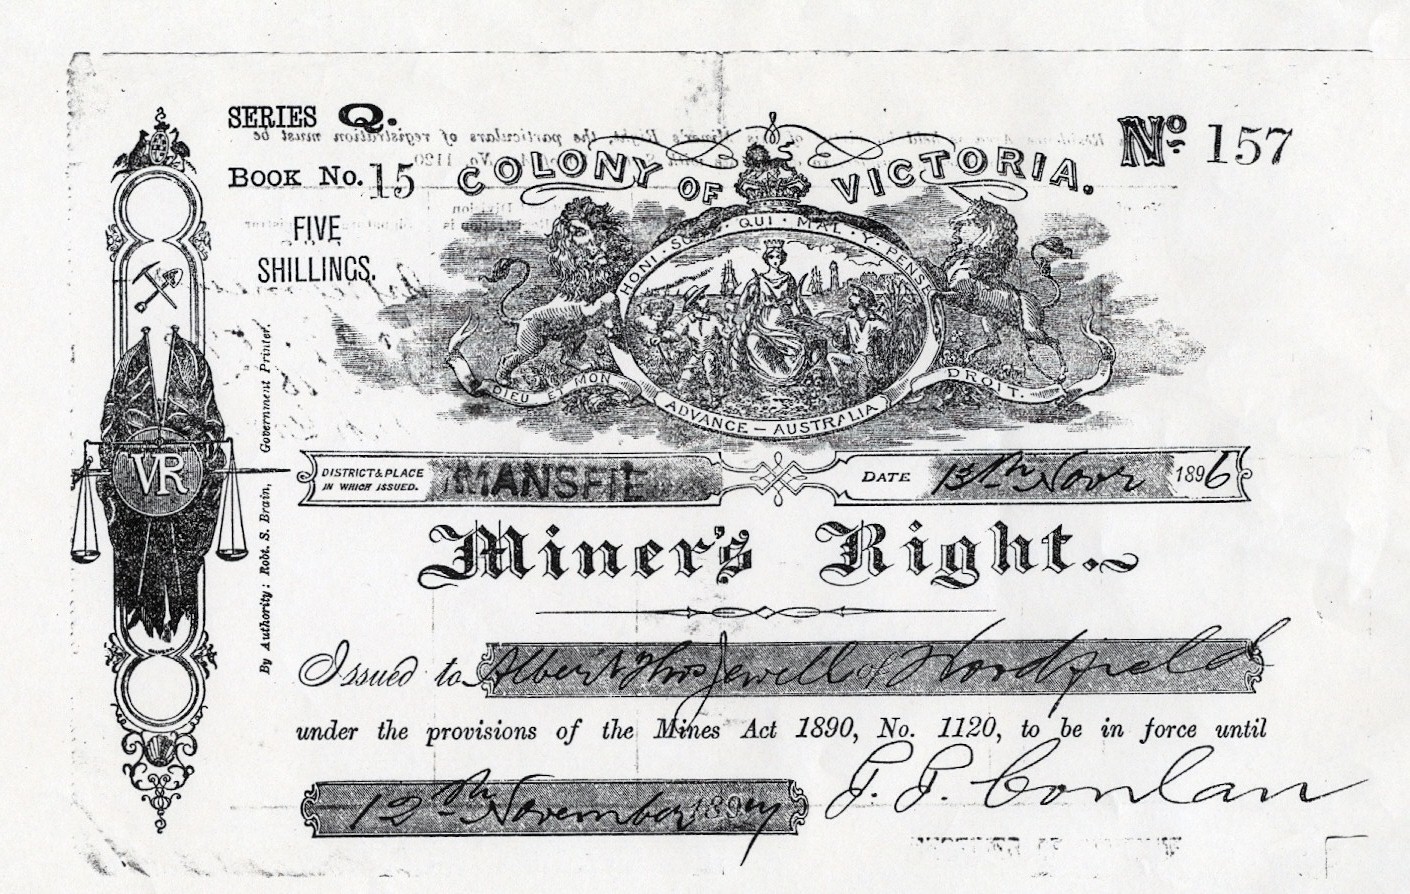 SERIES Q.
BOOK No. 15
FIVE
SHILLINGS.
COLONY OF VICTORIA.
No 157
HONI · SOIT · QUI · MAL · Y · PENSE
DIEU ET MON DROIT.
ADVANCE – AUSTRALIA
VR
By Authority: Robt. S. Brain, Government Printer.
DISTRICT & PLACE
IN WHICH ISSUED. MANSFIE
DATE 13th Novr 1896
Miner's Right.
Issued to Albert Thos Jewell of Woodfield
under the provisions of the Mines Act 1890, No. 1120, to be in force until
12th November 1897
Conlan